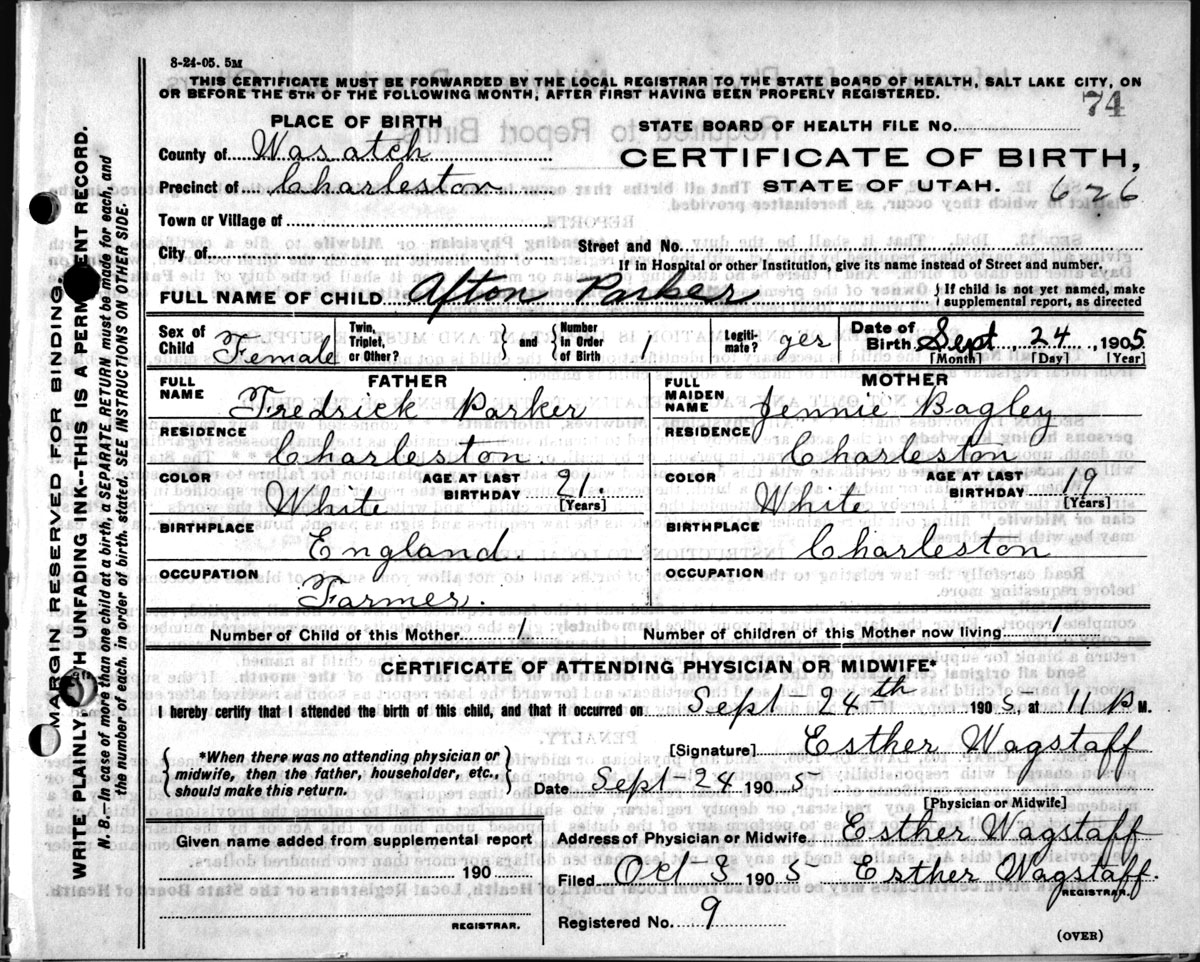 8-24-05. 5M
THIS CERTIFICATE MUST BE FORWARDED BY THE LOCAL REGISTRAR TO THE STATE BOARD OF HEALTH, SALT LAKE CITY, ON
OR BEFORE THE 5TH OF THE FOLLOWING MONTH, AFTER FIRST HAVING BEEN PROPERLY REGISTERED.
74
PLACE OF BIRTH
STATE BOARD OF HEALTH FILE No.
County of Wasatch
CERTIFICATE OF BIRTH,
Precinct of Charleston
STATE OF UTAH. 626
Town or Village of
City of
Street and No.
If in Hospital or other Institution, give its name instead of Street and number.
FULL NAME OF CHILD Afton Parker { If child is not yet named, make
supplemental report, as directed
Sex of Child Female
Twin, Triplet, or Other?
} and { Number in Order of Birth 1
Legiti-mate? yes
Date of Birth Sept, 24, 1905
[Month] [Day] [Year]
FATHER
FULL NAME Fredrick Parker
RESIDENCE Charleston
COLOR White
AGE AT LAST BIRTHDAY 21. [Years]
BIRTHPLACE England
OCCUPATION Farmer.
MOTHER
FULL MAIDEN NAME Jennie Bagley
RESIDENCE Charleston
COLOR White
AGE AT LAST BIRTHDAY 19 [Years]
BIRTHPLACE Charleston
OCCUPATION
Number of Child of this Mother 1 Number of children of this Mother now living 1
CERTIFICATE OF ATTENDING PHYSICIAN OR MIDWIFE*
I hereby certify that I attended the birth of this child, and that it occurred on Sept 24th 1905, at 11 P M.
{ *When there was no attending physician or
midwife, then the father, householder, etc.,
should make this return. }
[Signature] Esther Wagstaff
Date Sept-24 1905
[Physician or Midwife]
Given name added from supplemental report
190
REGISTRAR.
Address of Physician or Midwife Esther Wagstaff
Filed Oct 3 1905 Esther Wagstaff.
REGISTRAR.
Registered No. 9
(OVER)
MARGIN RESERVED FOR BINDING.
WRITE PLAINLY WITH UNFADING INK--THIS IS A PERMANENT RECORD.
N. B.--In case of more than one child at a birth, a SEPARATE RETURN must be made for each, and
the number of each, in order of birth, stated. SEE INSTRUCTIONS ON OTHER SIDE.